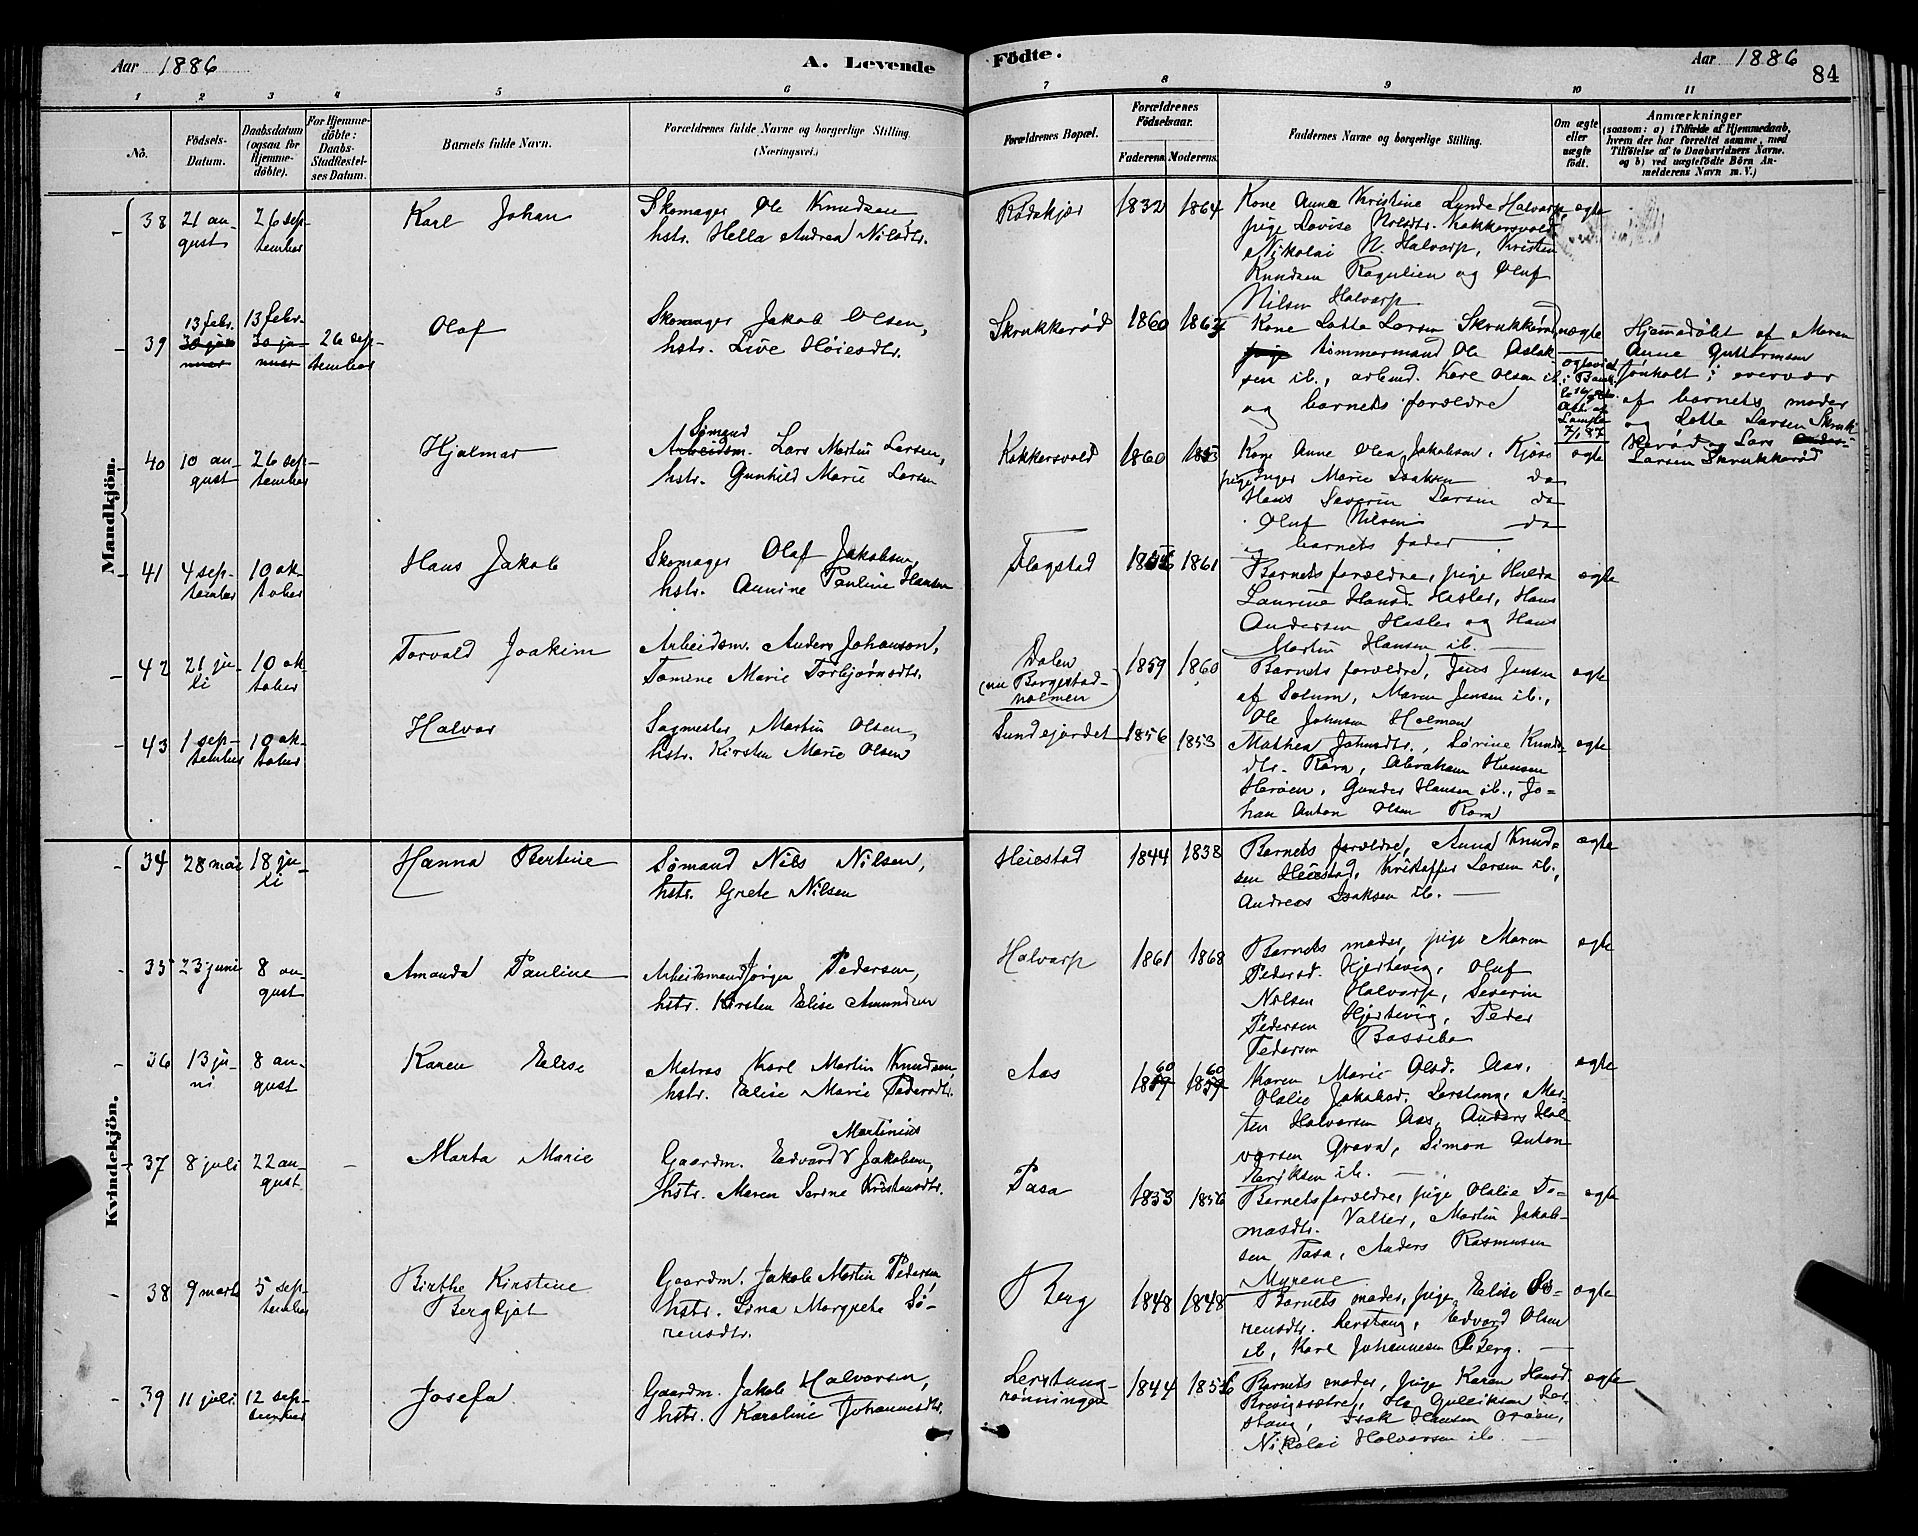 Aar 1886
A. Levende
Födte.
Aar 1886
84
1 2 3 4 5 6 7 8 9 10 11
No.
Födsels-
Datum.
Daabsdatum
(ogsaa for
Hjemme-
döbte).
For Hjemme-
döbte:
Daabs-
Stadfæstel-
ses Datum.
Barnets fulde Navn.
Forældrenes fulde Navne og borgerlige Stilling.
(Næringsvei.)
Forældrenes Bopæl.
Forældrenes
Födselsaar.
Faderens.
Moderens.
Faddernes Navne og borgerlige Stilling.
Om ægte
eller
uægte
födt.
Anmærkninger
(saasom: a) i Tilfælde af Hjemmedaab,
hvem der har forrettet samme, med
Tilföielse af to Daabsvidners Navne.
og b) ved uægtefödte Börn An-
melderens Navn m. V.)
Mandkjön.
38
21 au-
gust
26 sep-
tember
Karl Johan
Skomager Ole Knudsen,
hstr. Hella Andrea Nilsdtr.
Rødskjær
1832
1864
Kone Anne Kristine Lunde Halvarp,
pige Lovise Nilsdtr. Kokkersvold
Nikolai N. Halvarp, Kristen
Knudsen Rognlien og Oluf
Nilsen Halvarp
ægte
39
13 febr.
30 ja-
nuar
13 febr.
30 ja-
nuar
26 sep-
tember
Olaf
Skomager Jakob Olsen,
hstr. Live Høiesdtr.
Skrukkerød
1860
1862
Kone Lotte Larsen Skrukkerød
pige tømmermand Ole Aslak-
sen ib., arbmd. Karl Olsen ib.
og barnets forældre
uægte
7/1 87
Hjemmedøbt af Maren
Anne Guttormsen
Tønholt i overvær
af barnets moder
og Lotte Larsen Skruk-
kerød og Lars
Larsen Skrukkerød
40
10 au-
gust
26 sep-
tember
Hjalmar
Sømand
Arbeidsm. Lars Martin Larsen,
hstr. Gunhild Marie Larsen
Kokkersvold
1860
1853
Kone Anne Olea Jakobsen, Kjøse
pige Inger Marie Isaksen do
Hans Severin Larsen do
Oluf Nilsen do
og barnets fader
ægte
41
4 sep-
tember
10 ok-
tober
Hans Jakob
Skomager Olaf Jakobsen,
hstr. Annine Pauline Hansen
Flogstad
1861
Barnets forældre, pige Hulda
Laurine Hansd. Hesler, Hans
Andersen Hesler og Hans
Martin Hansen ib.
ægte
42
21 ju-
li
10 ok-
tober
Torvald Joakim
Arbeidsm. Anders Johansen,
Tomine Marie Torbjørnsdtr.
Dalen
(nu Borgestad-
holmen)
1859
1860
Barnets forældre, Jens Jensen
af Solum, Maren Jensen ib.,
Ole Johnsen Holman
ægte
43
1 sep-
tember
10 ok-
tober
Halvor
Sagmester Martin Olsen,
hstr. Kirsten Marie Olsen
Sundejordet
1856
1853
Mathea Johnsdtr., Sørine Knuds-
dtr. Røra, Abraham Hansen
Herøen, Gunder Hansen ib., Jo-
han Anton Olsen Røra
ægte
Kvindekjön.
34
28 mai
18 ju-
li
Hanna Bertine
Sømand Nils Nilsen,
hstr. Grete Nilsen
Heiestad
1844
1838
Barnets forældre, Anna Knud-
sen Heiestad, Kristoffer Larsen ib.,
Andreas Isaksen ib.
ægte
35
23 juni
8 au-
gust
Amanda Pauline
Arbeidsmand Jørgen Pedersen,
hstr. Kirsten Elise Amundsen
Halvarp
1861
1868
Barnets moder, pige Maren
Pedersd. Hjertevig, Oluf
Nilsen Halvarp, Severin
Pedersen Hjertevig, Peder
Pedersen Bassebo
ægte
36
13 ju-
ni
8 au-
gust
Karen Elise
Matros Karl Martin Knudsen,
hstr. Elise Marie Pedersdtr.
Aas
60
1859
60
1859
Karen Marie Olsd. Aas,
Olalie Jakobsd. Lerstang, Mor-
ten Halvorsen Aas, Anders Hal-
vorsen Grava, Simon Anton
Eriksen ib.
ægte
37
8 juli
22 au-
gust
Marta Marie
Martinius
Gaardm. Edvard Jakobsen,
hstr. Maren Serine Kristensdtr.
Tasa
1853
1856
Barnets forældre, pige Olalie To-
masdtr. Valler, Martin Jakob-
sen Tasa, Anders Rasmusen
Myrene
ægte
38
9 marts
5 sep-
tember
Birthe Kirstine
Bergljot
Gaardm. Jakob Martin Pedersen,
hstr. Lina Margrete Sø-
rensdtr.
Berg
1848
1848
Barnets moder, pige Elise Sø-
rensdtr. Lerstang, Edvard Olsen
ib., Karl Johannesen Berg.
ægte
39
11 juli
12 sep-
tember
Josefa
Gaardm. Jakob Halvorsen,
hstr. Karoline Johannesdtr.
Lerstang-
rønningen
1844
1856
Barnets moder, pige Karen Hansd.
Krogssætre, Ole Gulliksen Ler-
stang, Isak Hansen Orøen,
Nikolai Halvorsen ib.
ægte